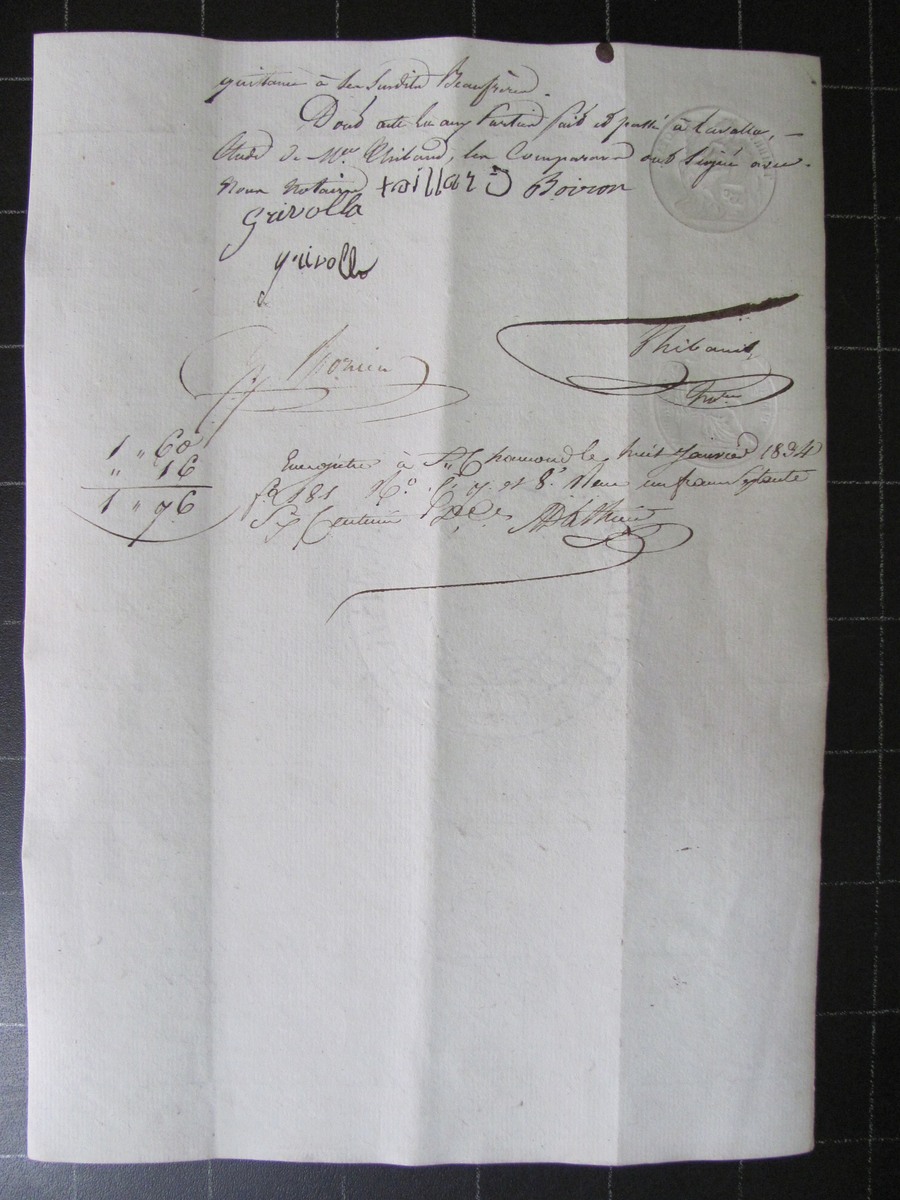 quittance à ses susdits Beaufrères.
Dont acte lu aux Parties fait et passé à Lavalla, –
Etude de Me. Thibaud, les Comparans ont signé avec
Nous Notaires taillard Boiron
grivolla
grivolla
Thibaud
Nre
1 " 60
" 16
1 " 76
Enregistré à St. Chamond le huit Janvier 1834
fo 181 Ro. C. 7. et 8. Reçu un franc soixante
Six Centimes